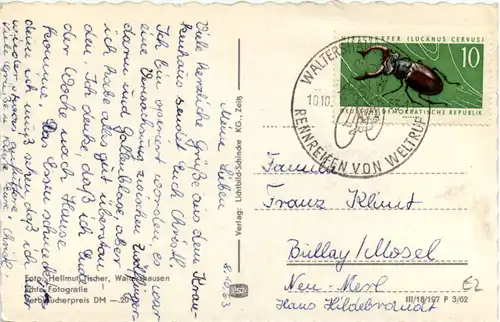 Meine Lieben
8.10.63
Viele herzliche Grüße aus dem Kran-
kenhaus sendet Euch Christl.
Ich bin operiert worden, es war
eine Verwachsung zwischen Zwölffinger-
darm und Gallenblase, aber
ich habe alles gut überstan-
den. Ich denke, daß ich Ende
der Woche nach Hause
komme. Das Essen schmeckt
ich muß sehen daß ich
Viele Grüße
Verlag: Lichtbild-Schincke KG., Zeitz
HIRSCHKÄFER (LUCANUS CERVUS)
10
DEUTSCHE DEMOKRATISCHE REPUBLIK
WALTERS
10.10.
RENNREIFEN VON WELTRUF
Familie
Franz Klimt
Bullay/Mosel
Neu-Merl
Hans Hildebrandt
EZ
Foto: Hellmut Fischer, Waltershausen
Echte Fotografie
Verbraucherpreis DM —.20
III/18/197 P 3/62